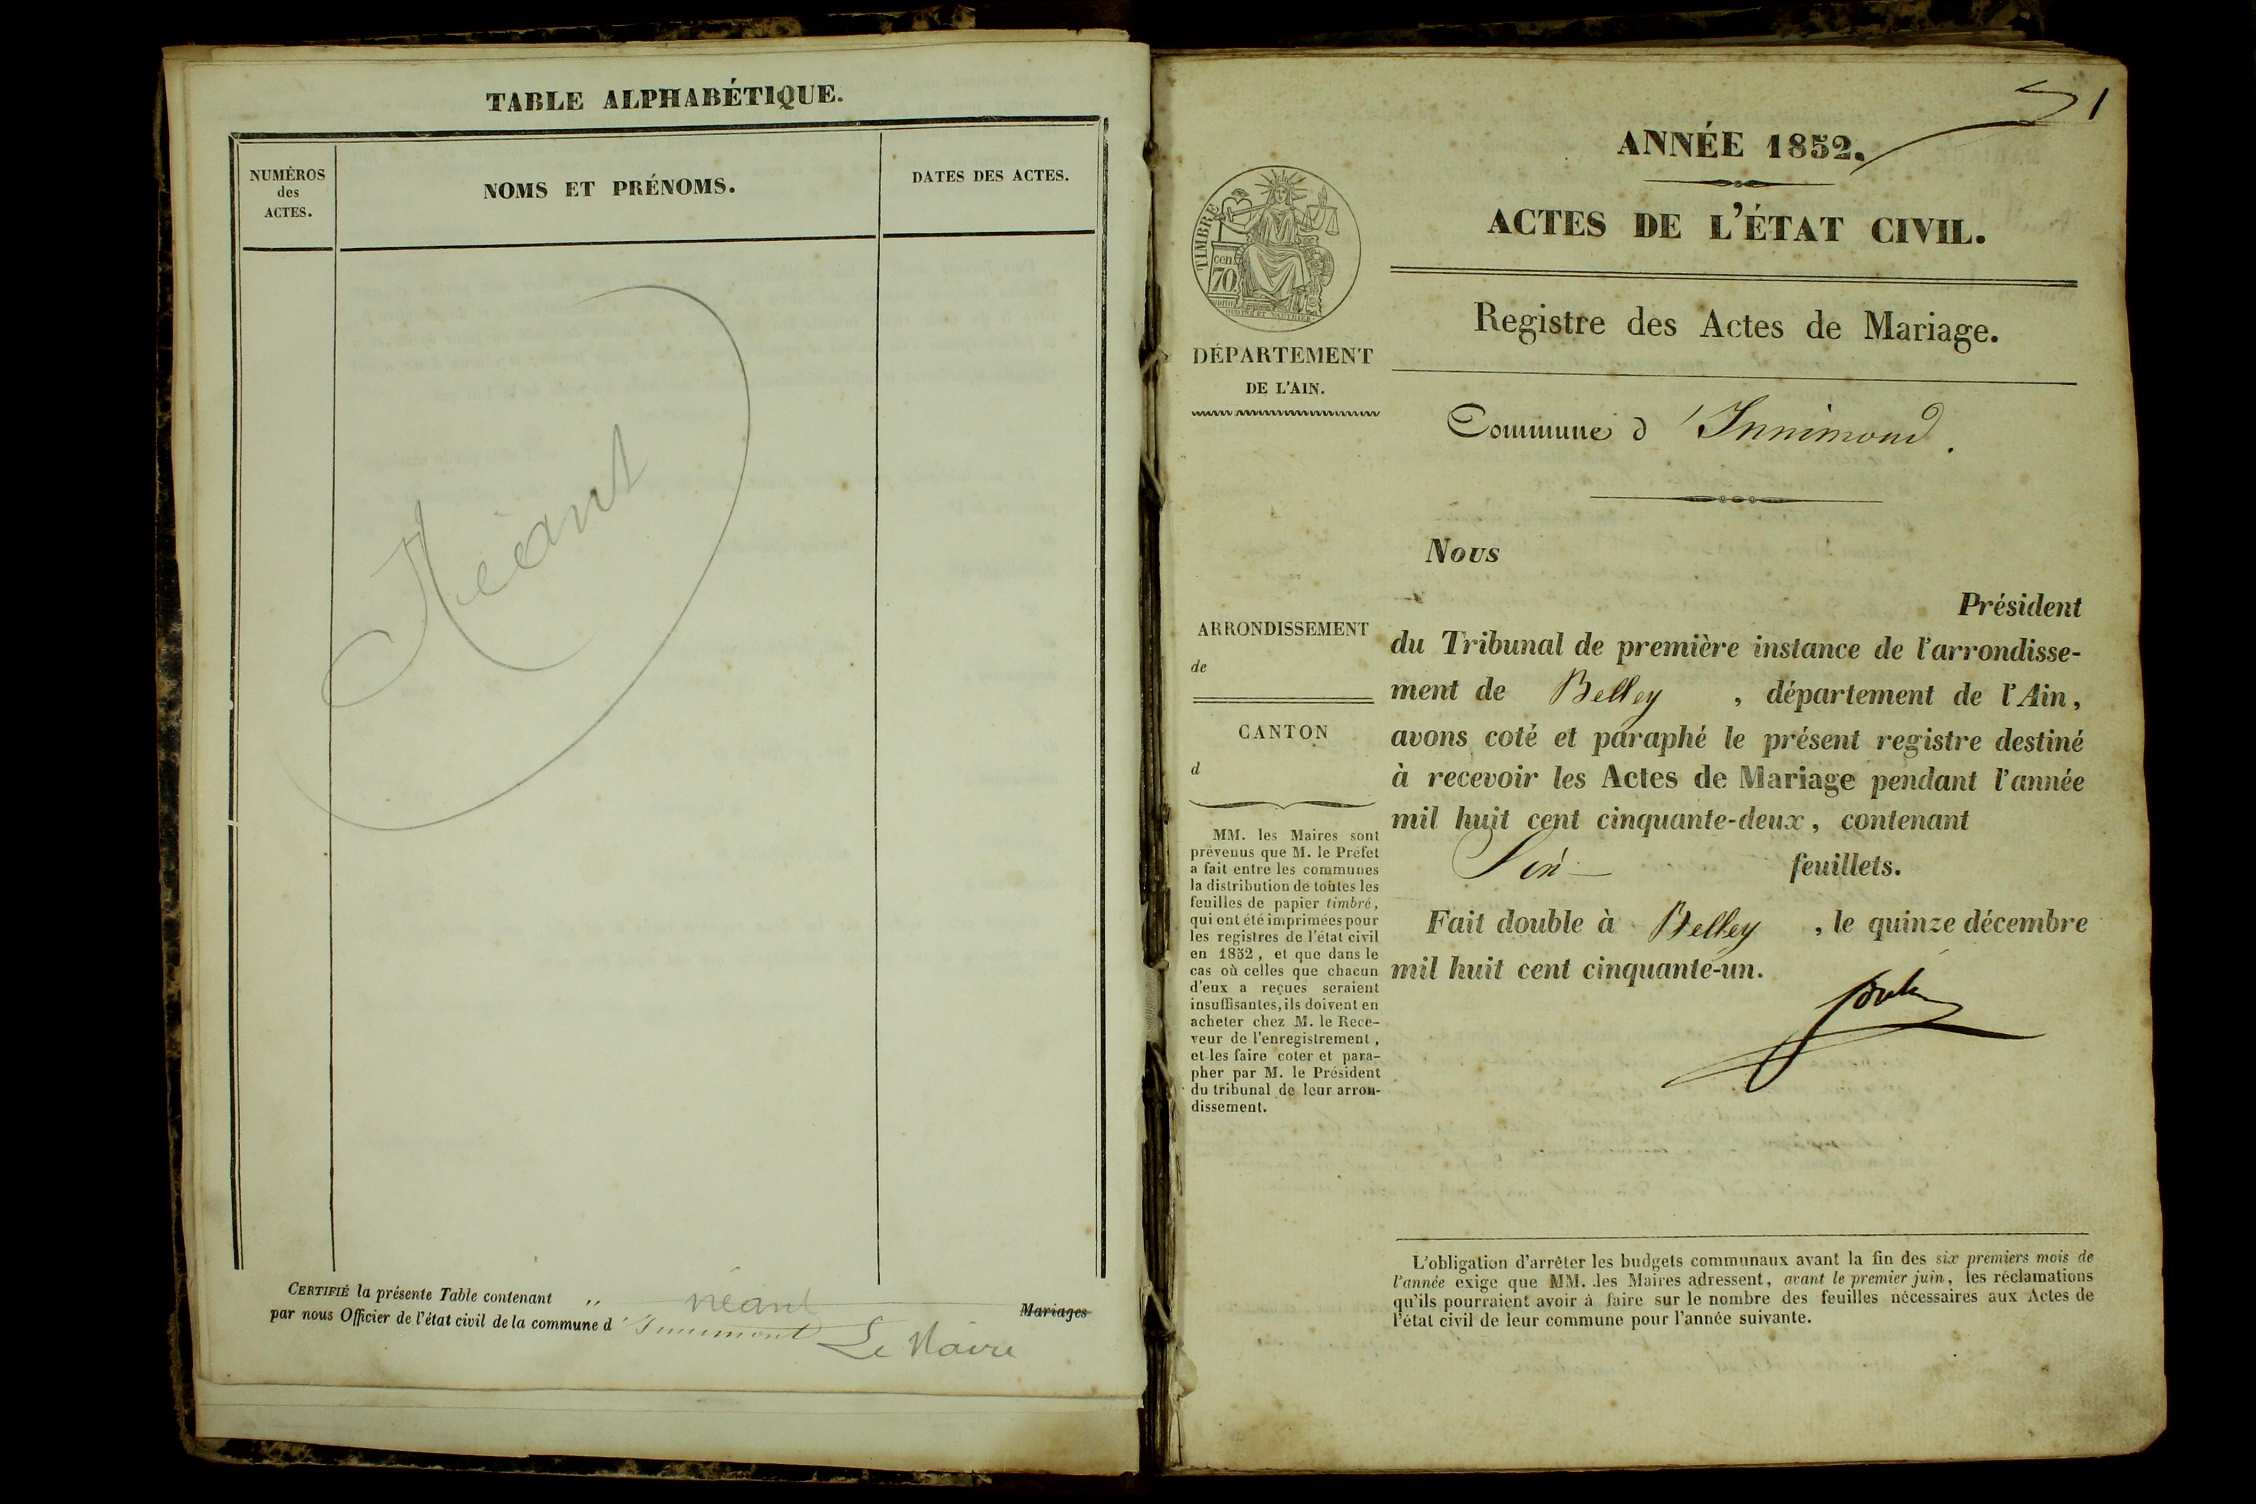 TABLE ALPHABÉTIQUE.
NUMÉROS
des
ACTES.
NOMS ET PRÉNOMS.
DATES DES ACTES.
Néant
CERTIFIÉ la présente Table contenant " néant Mariages
par nous Officier de l'état civil de la commune d'Innimont
Le Maire
1
ANNÉE 1852.
ACTES DE L'ÉTAT CIVIL.
Registre des Actes de Mariage.
TIMBRE
cen.
70
DÉPARTEMENT
DE L'AIN.
Commune d'Innimond.
ARRONDISSEMENT
de
CANTON
d
MM. les Maires sont
prévenus que M. le Préfet
a fait entre les communes
la distribution de toutes les
feuilles de papier timbré,
qui ont été imprimées pour
les registres de l'état civil
en 1852, et que dans le
cas où celles que chacun
d'eux a reçues seraient
insuffisantes, ils doivent en
acheter chez M. le Rece-
veur de l'enregistrement,
et les faire coter et para-
pher par M. le Président
du tribunal de leur arron-
dissement.
Nous
Président
du Tribunal de première instance de l'arrondisse-
ment de Belley, département de l'Ain,
avons coté et paraphé le présent registre destiné
à recevoir les Actes de Mariage pendant l'année
mil huit cent cinquante-deux, contenant
Six feuillets.
Fait double à Belley, le quinze décembre
mil huit cent cinquante-un.
L'obligation d'arrêter les budgets communaux avant la fin des six premiers mois de
l'année exige que MM. les Maires adressent, avant le premier juin, les réclamations
qu'ils pourraient avoir à faire sur le nombre des feuilles nécessaires aux Actes de
l'état civil de leur commune pour l'année suivante.